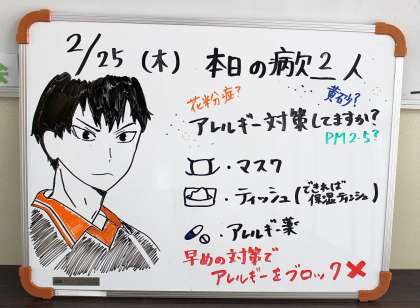 2/25 (木) 本日の病欠 2人
花粉症?
黄砂?
アレルギー対策してますか?
PM2.5?
・マスク
・ティッシュ(できれば保湿ティッシュ)
・アレルギー薬
早めの対策で
アレルギーをブロック✖